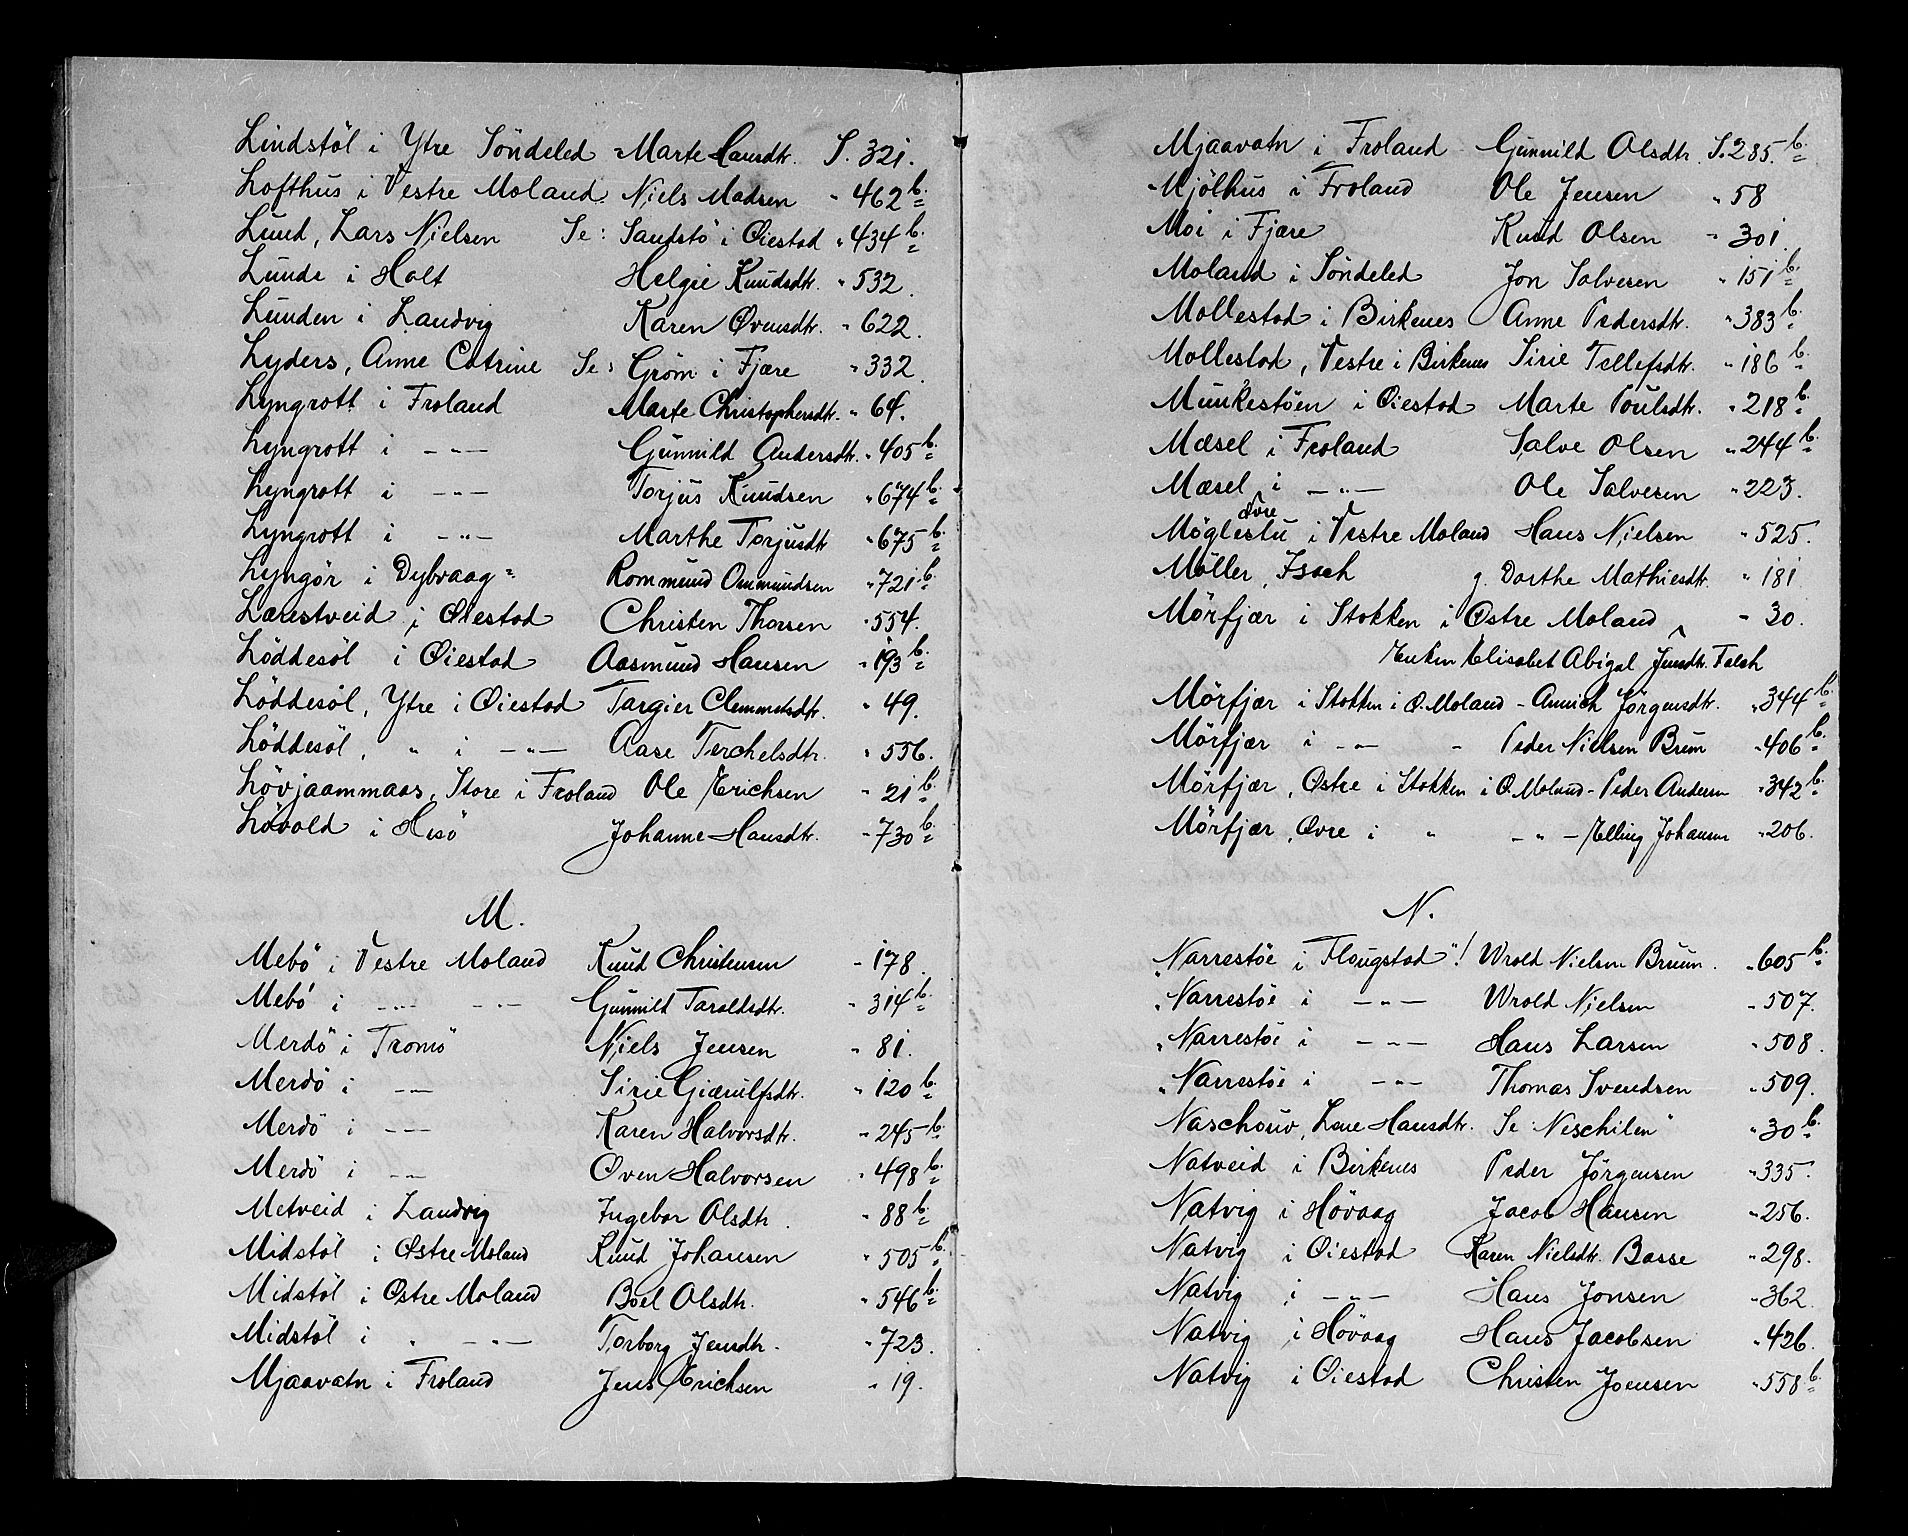 Lindstöl i Ytre Söndeled - Marte Hansdtr. S. 321.
Lofthus i Vestre Moland. Niels Madsen " 462 b.
Lund, Lars Nielsen Se: Sandstö i Øiestad " 434 b.
Lunde i Holt Helgie Knudsdtr. " 532.
Lunden i Landvig Karen Øvensdtr. " 622.
Lyders, Anne Catrine Se: Gröm i Fjære " 332.
Lyngrott i Froland Marte Christophersdtr. " 64.
Lyngrott i — " — Gunnild Andersdtr. " 405 b.
Lyngrott i — " — Torjus Knudsen " 674 b.
Lyngrott i — " — Marthe Torjusdtr " 675 b.
Lyngör i Dybvaag - Rommund Ommundsen " 721 b.
Larestveid i Øiestad Christen Thorsen " 554.
Löddesöl i Øiestad Aasmund Hansen " 193 b.
Löddesöl, Ytre i Øiestad Targier Clemmetsdtr. " 49.
Löddesöl, " i — " — Aase Terchelsdtr. " 556.
Lövjaammaas, Store i Froland Ole Erichsen " 21 b.
Lövold i Hisö Johanne Hansdtr. " 730 b.
M.
Mebö i Vestre Moland Knud Christensen " 178.
Mebö i — " — — " — Gunnild Taraldsdtr. " 314 b.
Merdö i Tromö Niels Jensen " 81.
Merdö i — " — Sirie Giærulfsdtr. " 120 b.
Merdö i — " — Karen Halvorsdtr. " 245 b.
Merdö i — " — Oven Halvorsen " 498 b.
Metveid i Landvig Ingebor Olsdtr. " 88 b.
Midstöl i Østre Moland Knud Johansen " 505 b.
Midstöl i Østre Moland Boel Olsdtr. " 546 b.
Midstöl i " — " — Torborg Jensdtr. " 723.
Mjaavatn i Froland Jens Erichsen " 19.
Mjaavatn i Froland Gunnild Olsdtr. S. 285. b.
Mjölhus i Froland Ole Jensen " 58
Moi i Fjære Knud Olsen " 301.
Moland i Söndeled Jon Salvesen " 151 b.
Mollestad i Birkenes Anne Pedersdtr. " 383 b.
Mollestad, Vestre i Birkenes Sirie Tellefsdtr. " 186 b.
Munkestöen i Øiestad Marte Poulsdtr. " 218 b.
Mæsel i Froland Salve Olsen " 244 b.
Mæsel i — " — Ole Salvesen " 223.
Øvre
Möglestu i Vestre Moland Hans Nielsen " 525.
Möller, Isach g. Dorthe Mathiesdtr. " 181
Mörfjær i Stokken i Østre Moland " 30.
Enken Elisabet Abigal Jensdtr. Falch
Mörfjær i Stokken i Ø. Moland - Annich Jörgensdtr. " 344 b.
Mörfjær i — " — - Peder Nielsen Brun " 406 b.
Mörfjær, Østre i Stokken i Ø. Moland - Peder Andersen " 342 b.
Mörfjær, Øvre i " — " — Elling Johansen " 206.
N.
"Narrestöe i Flougstad"! Wrold Nielsen Bruun. " 605 b.
"Narrestöe i — " — Wrold Nielsen " 507.
"Narrestöe i — " — Hans Larsen " 508.
"Narrestöe i — " — Thomas Svendsen " 509.
Naschouv, Lene Hansdtr. Se: Neschilen" " 30 b.
Natveid i Birkenes Peder Jörgensen " 335.
Natvig i Hövaag Jacob Hansen " 256.
Natvig i Øiestad Karen Nielsdtr. Basse " 298.
Natvig i — " — Hans Jonsen " 362.
Natvig i Hövaag Hans Jacobsen " 426.
Natvig i Øiestad Christen Joensen " 558 b.